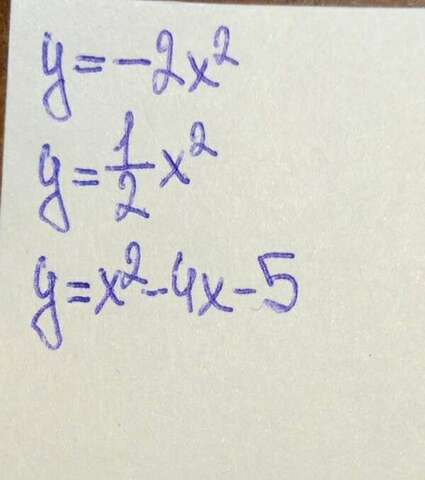 y=-2x²
y=½x²
y=x²-4x-5